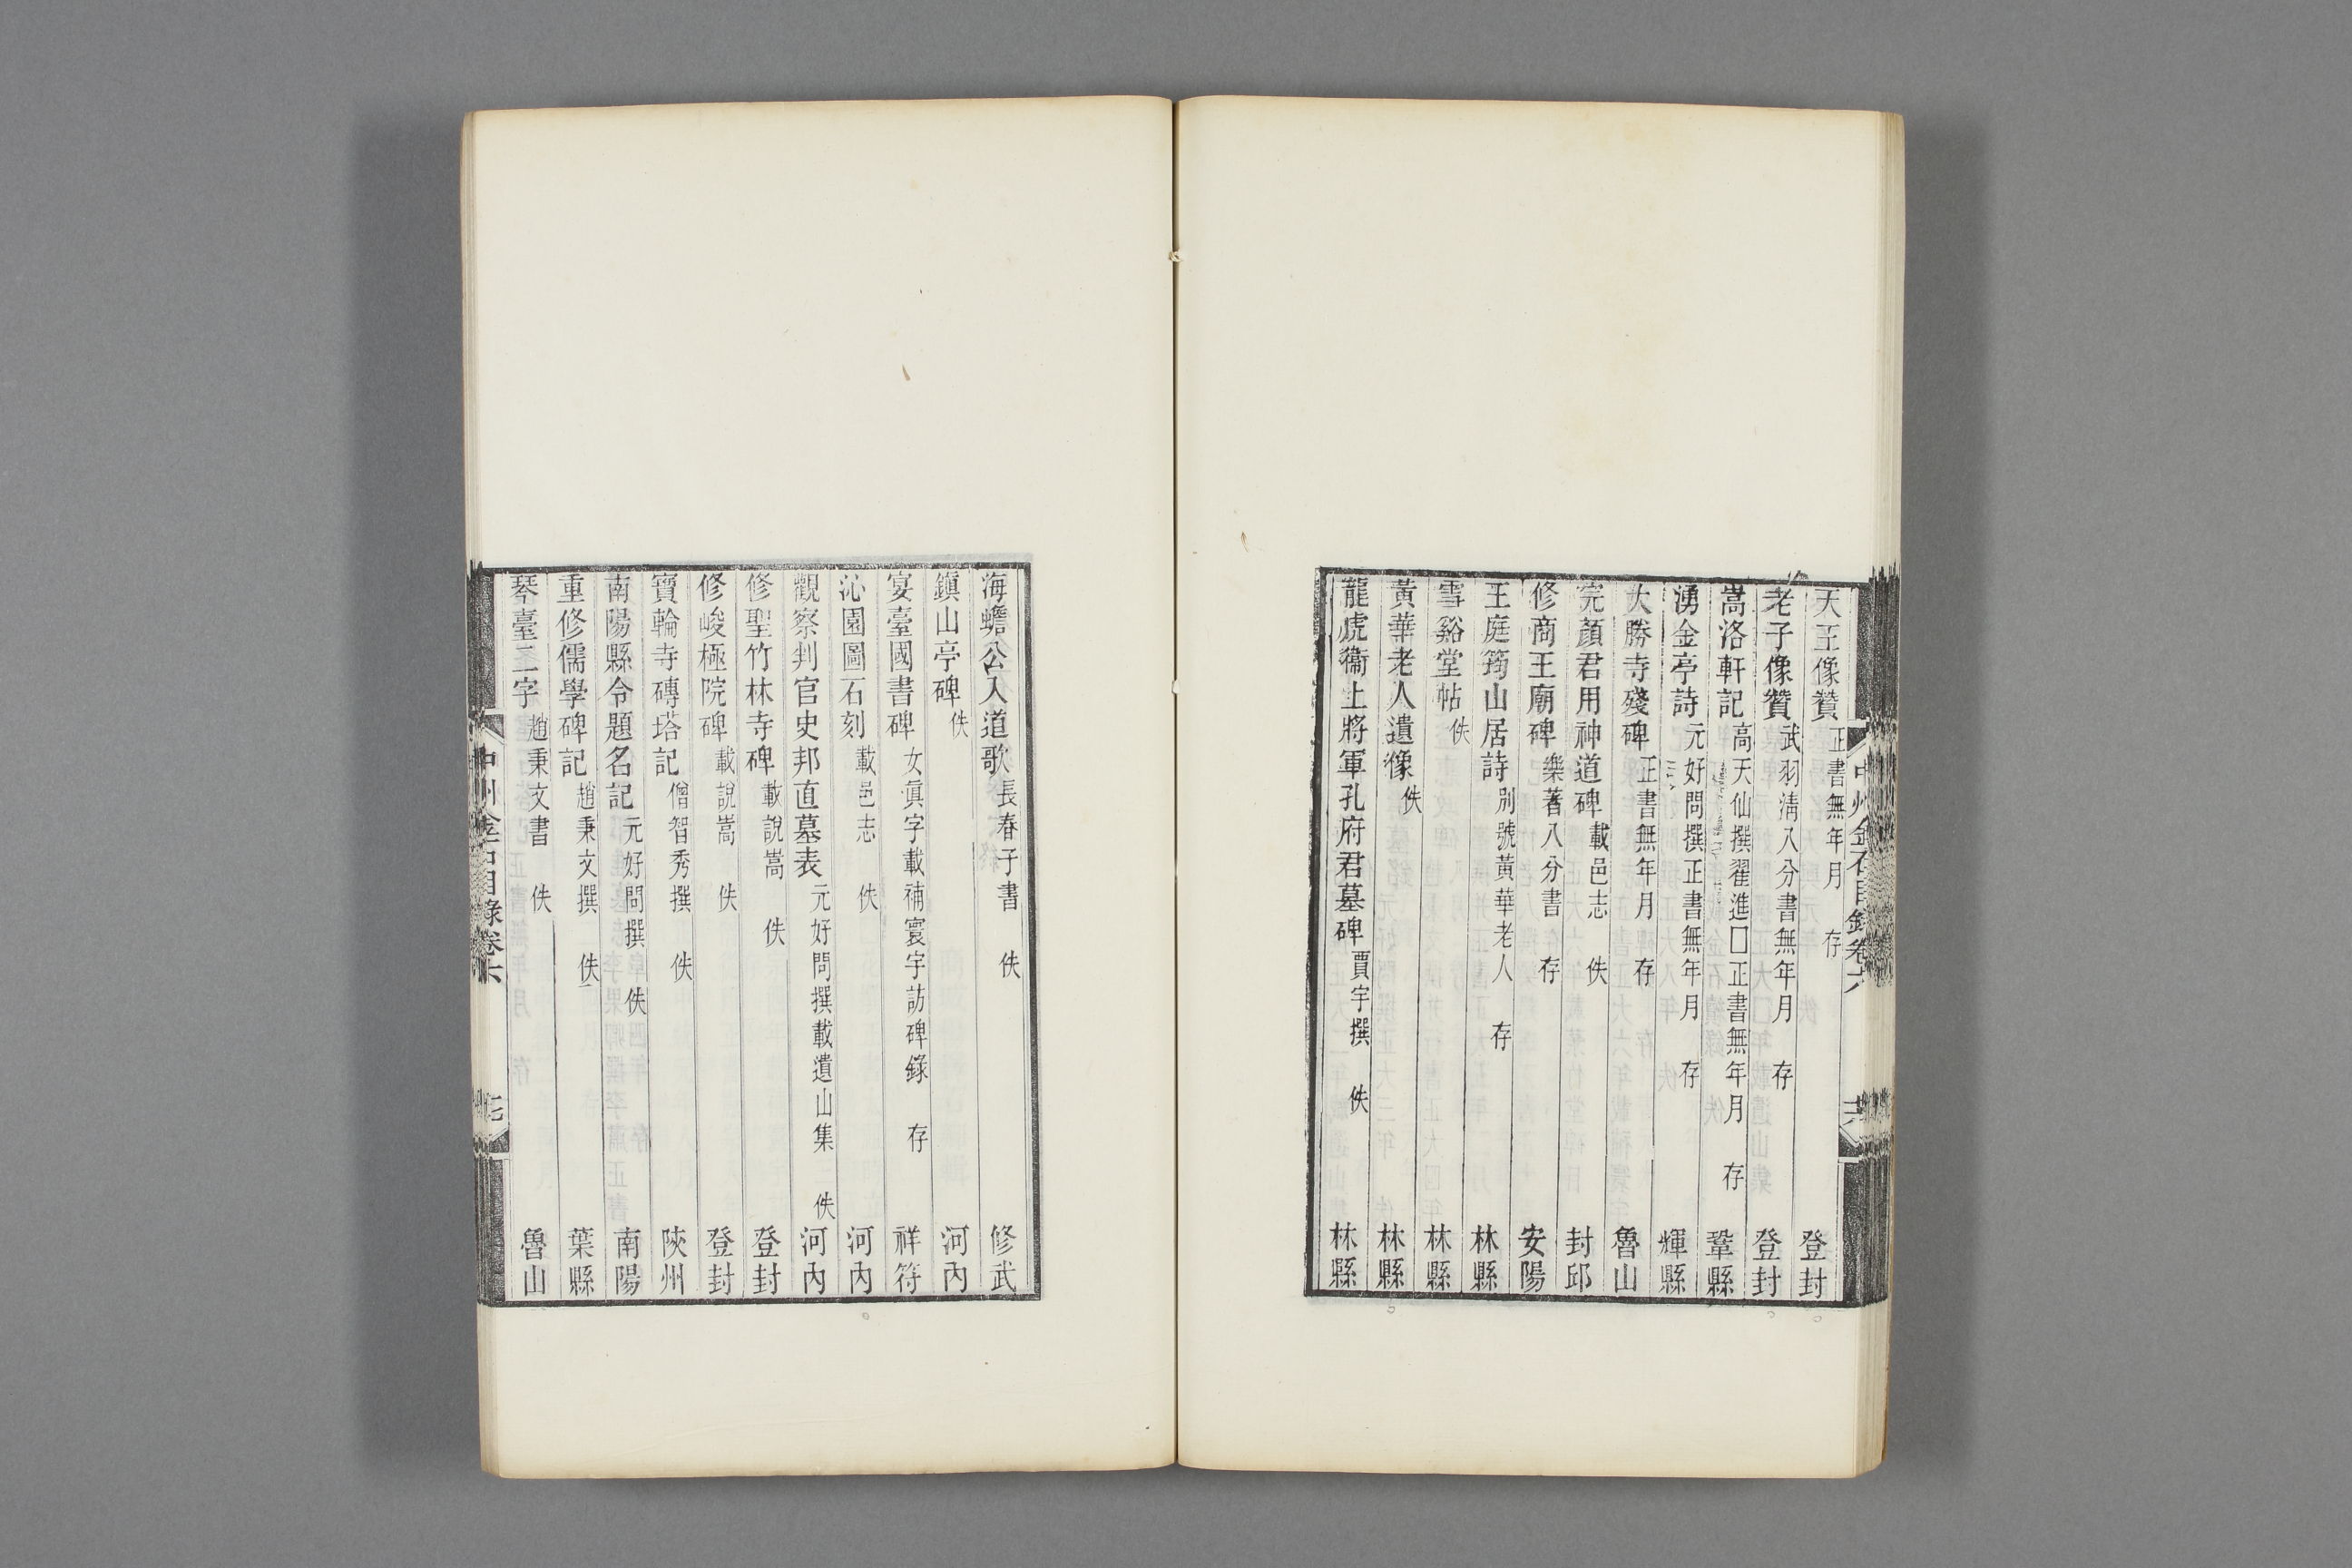 天王像贊 正書無年月 存 登封
老子像贊 武羽淸八分書無年月 存 登封
嵩洛軒記 高天仙撰翟進□正書無年月 存 鞏縣
湧金亭詩 元好問撰正書無年月 存 輝縣
大勝寺殘碑 正書無年月 存 魯山
完顏君用神道碑 載邑志 佚 封邱
修商王廟碑 樂著八分書 存 安陽
王庭筠山居詩 別號黃華老人 存 林縣
雪谿堂帖 佚 林縣
黃華老人遺像 佚 林縣
龍虎衞上將軍孔府君墓碑 賈宇撰 佚 林縣
中州金石目錄卷六
海蟾公入道歌 長春子書 佚 修武
鎭山亭碑 佚 河內
宴臺國書碑 女眞字載補寰宇訪碑錄 存 祥符
沁園圖石刻 載邑志 佚 河內
觀察判官史邦直墓表 元好問撰載遺山集 佚 河內
修聖竹林寺碑 載說嵩 佚 登封
修峻極院碑 載說嵩 佚 登封
寶輪寺磚塔記 僧智秀撰 佚 陝州
南陽縣令題名記 元好問撰 佚 南陽
重修儒學碑記 趙秉文撰 佚 葉縣
琴臺二字 趙秉文書 佚 魯山
中州金石目錄卷六